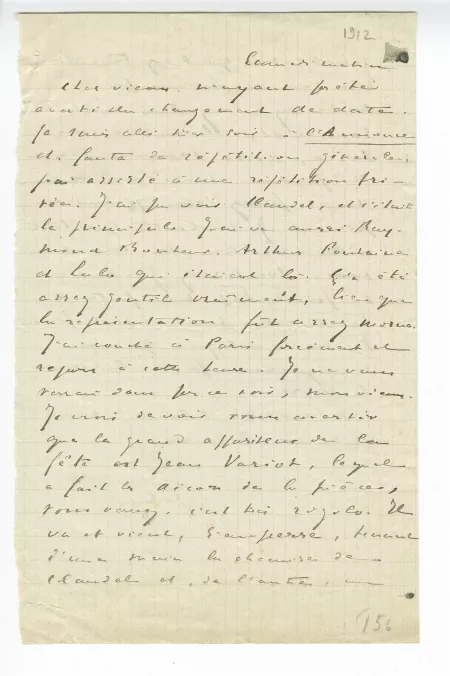 1912
Samedi matin
Cher vieux, n'ayant pas été
averti du changement de date.
Je suis allé hier soir à l'Annonce
et faute de répétition générale,
j'ai assisté à une répétition privée.
J'ai pu voir Claudel, et c'était
le principal. J'ai vu aussi Ray-
mond Bonheur, Arthur Fontaine
et Lulo qui étaient là. Ç'a été
assez gentil vraiment, bien que
la représentation fût assez morne.
J'ai couché à Paris forcément et
repars à cette heure. Je ne vous
verrai donc pas ce soir, mon vieux.
Je crois devoir vous avertir
que le grand appariteur de la
fête est Jean Variot, lequel
a fait les décors de la pièce,
vous voyez, c'est très rigolo. Il
va et vient, s'empresse, tenant
d'une main la chemise de
Claudel et, de l'autre, un
156